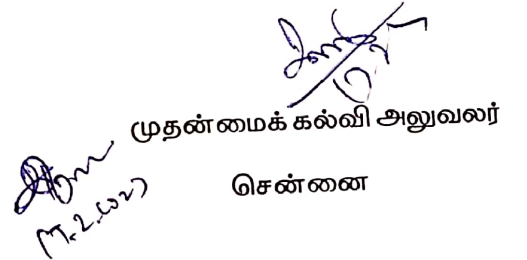 முதன்மைக் கல்வி அலுவலர்
சென்னை